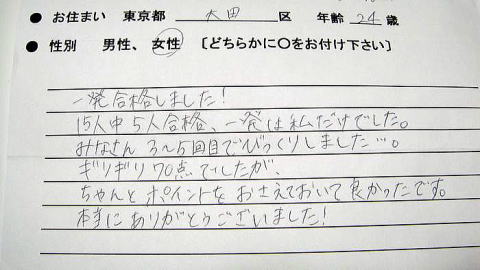 ● お住まい 東京都 大田 区 年齢 24 歳
● 性別 男性、 女性 〔どちらかに〇をお付け下さい〕
一発合格しました!
15人中5人合格、一発は私だけでした。
みなさん 3~5回目でびっくりしました…。
ギリギリ70点でしたが、
ちゃんとポイントをおさえておいて良かったです。
本当にありがとうございました!